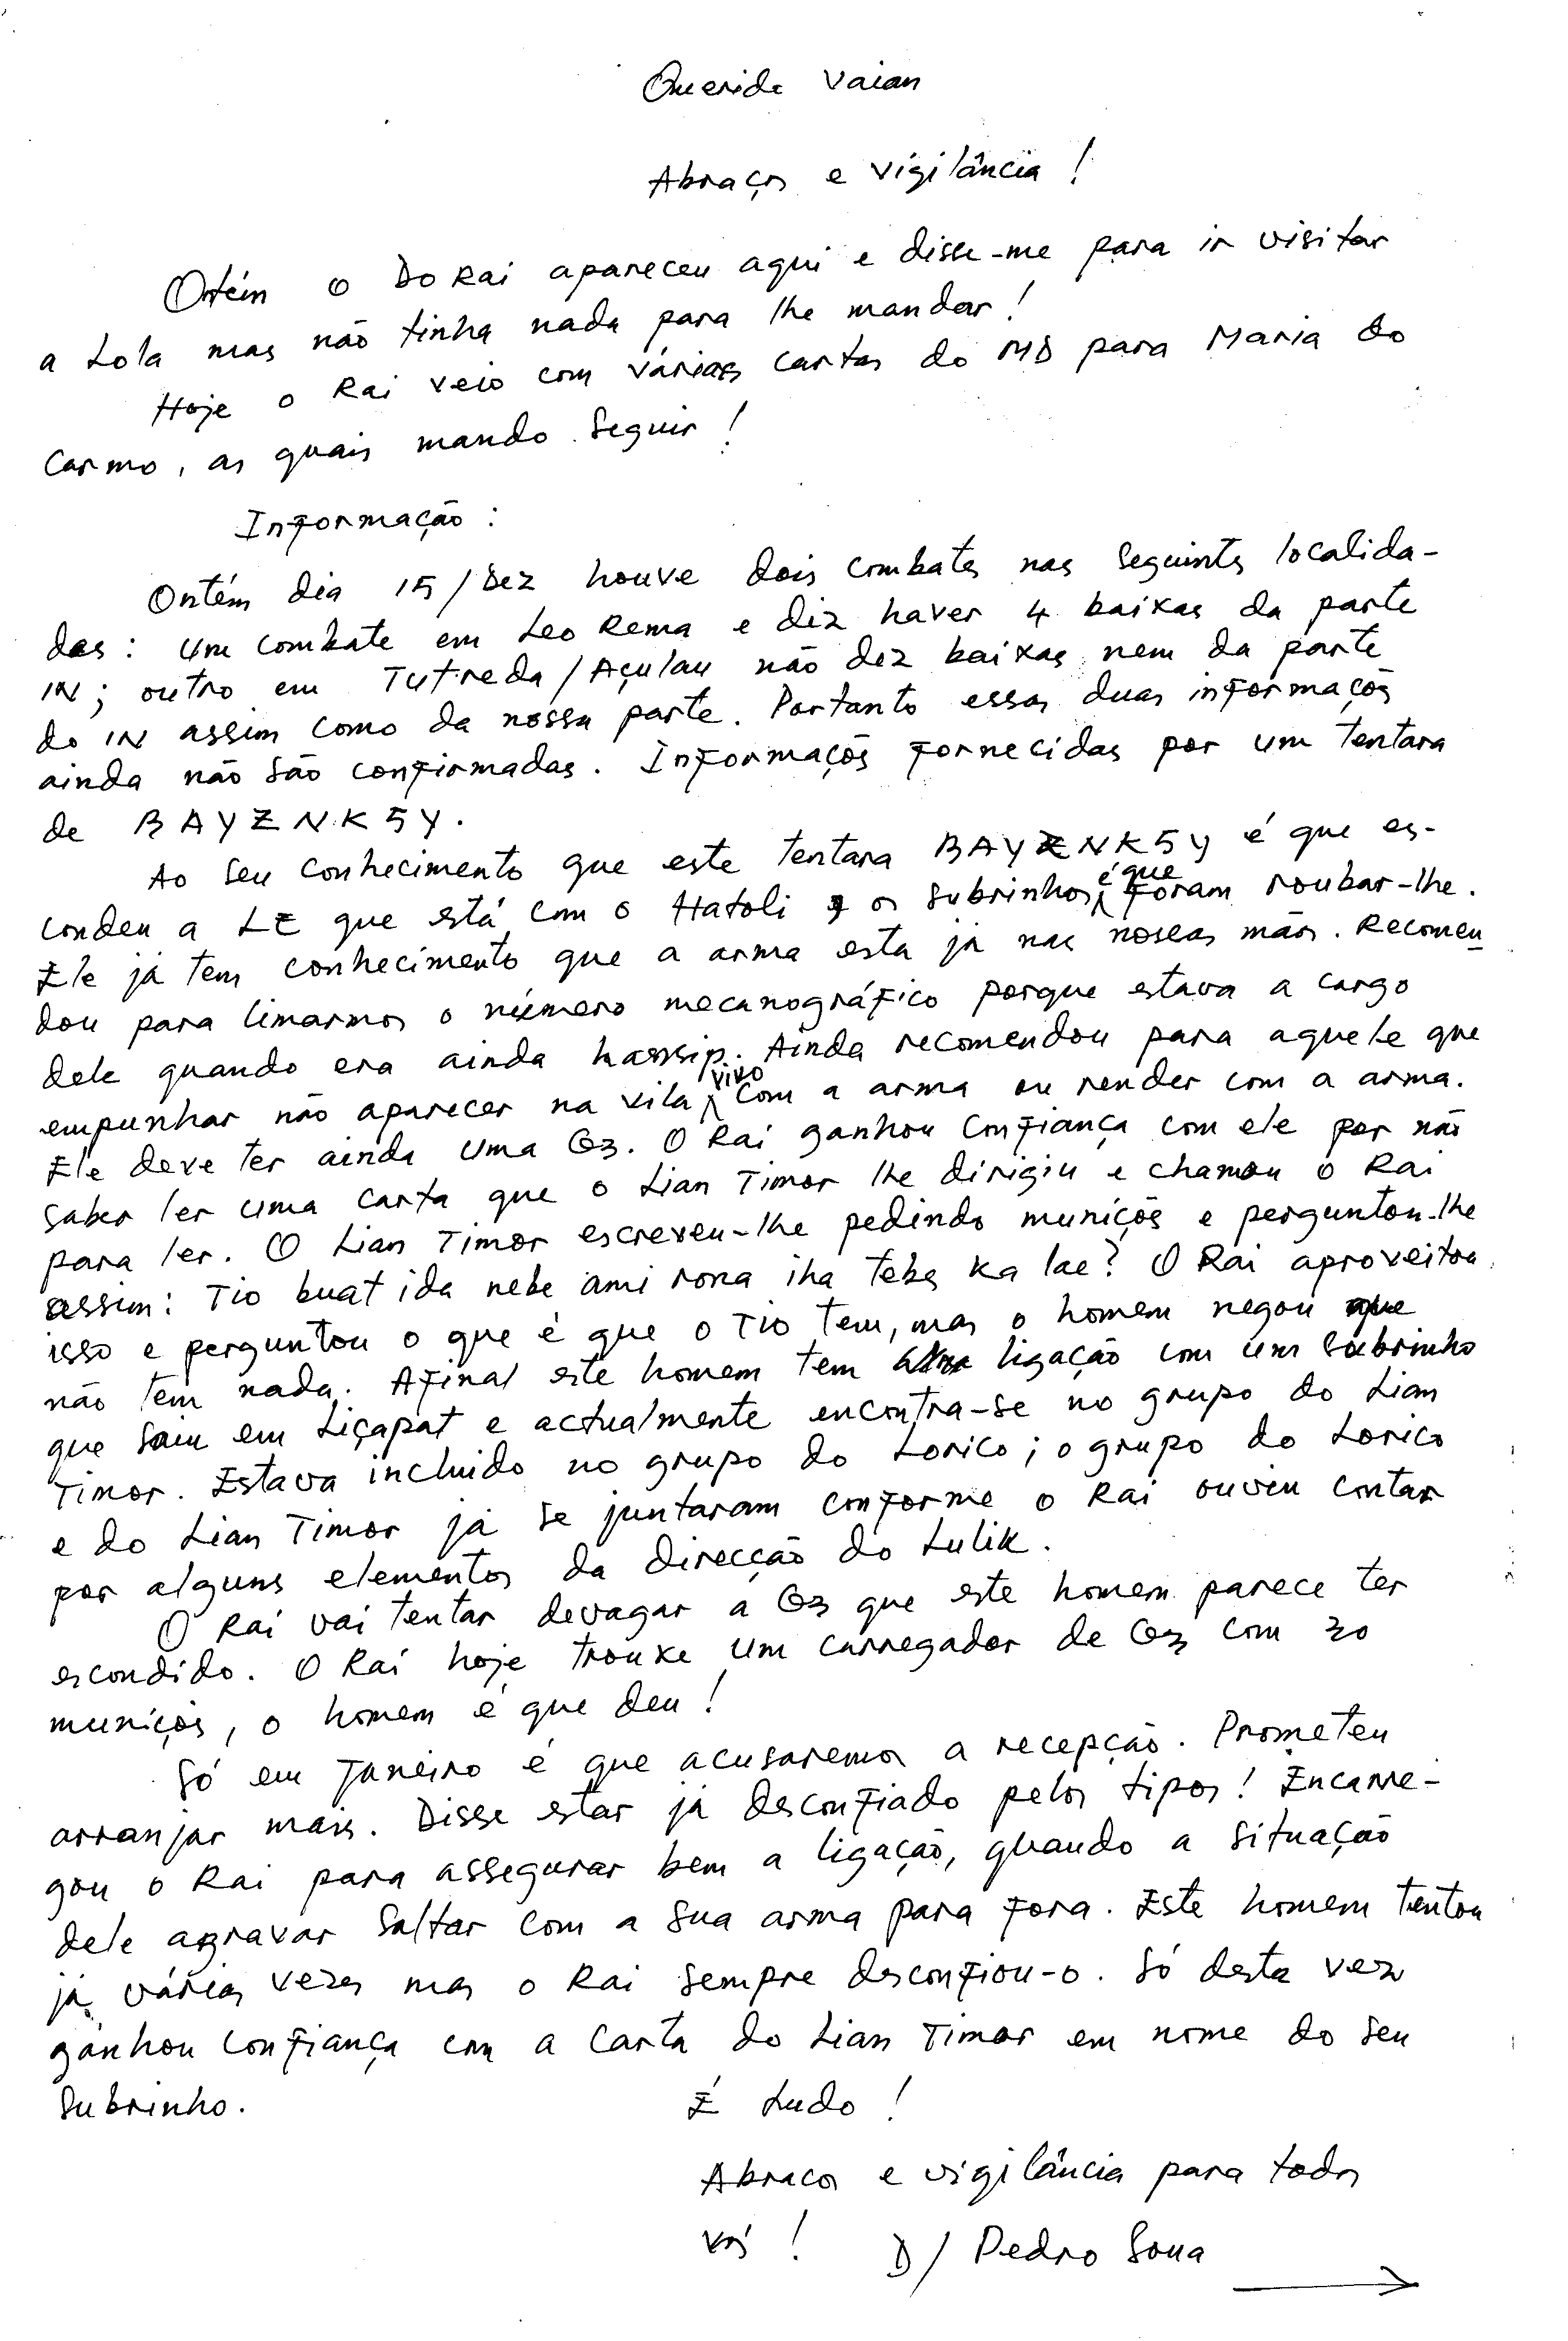 Querida Vaian
Abraços e vigilância !
Ontém o Do Rai apareceu aqui e disse-me para ir visitar
a Lola mas não tinha nada para lhe mandar !
Hoje o Rai veio com várias cartas do MD para Maria do
Carmo, as quais mando seguir !
Informação :
Ontém dia 15/Dez houve dois combates nas seguintes localida-
des : um combate em Leo Rema e diz haver 4 baixas da parte
IN; outro em Tutreda/Açulau não dez baixas nem da parte
do IN assim como da nossa parte. Portanto essas duas informações
ainda não são confirmadas. Informações fornecidas por um tentara
de BAYZNK5Y.
Ao seu conhecimento que este tentara BAYZNK5Y é que es-
condeu a LE que está com o Hatoli os subrinhos é que foram roubar-lhe.
Ele já tem conhecimento que a arma esta já nas nossas mãos. Recomen
dou para limarmos o número mecanográfico porque estava a cargo
dele quando era ainda hanssip. Ainda recomendou para aquele que
empunhar não aparecer na vila vivo com a arma ou render com a arma.
Ele deve ter ainda uma G3. O Rai ganhou confiança com ele por não
saber ler uma carta que o Lian Timor lhe dirigiu e chamou o Rai
para ler. O Lian Timor escreveu-lhe pedindo munições e perguntou-lhe
assim: Tio buat ida nebe ami rona iha tebs ka lae? O Rai aproveitou
isso e perguntou o que é que o Tio tem, mas o homem negou que
não tem nada. Afinal este homem tem ligação com um subrinho
que saiu em Liçapat e actualmente encontra-se no grupo do Lian
Timor. Estava incluido no grupo do Lorico; o grupo do Lorico
e do Lian Timor já se juntaram conforme o Rai ouviu contar
por alguns elementos da direcção do Lulik.
O Rai vai tentar devagar a G3 que este homem parece ter
escondido. O Rai hoje trouxe um carregador de G3 com 20
munições, o homem é que deu !
Só em Janeiro é que acusaremos a recepção. Prometeu
arranjar mais. Disse estar já desconfiado pelos tipos! Encarre-
gou o Rai para assegurar bem a ligação, quando a situação
dele agravar saltar com a sua arma para fora. Este homem tentou
já várias vezes mas o Rai sempre desconfiou-o. Só desta vez
ganhou confiança com a carta do Lian Timor em nome do seu
subrinho.
É tudo !
Abraços e vigilância para todos
vós !
D/ Pedro Soua